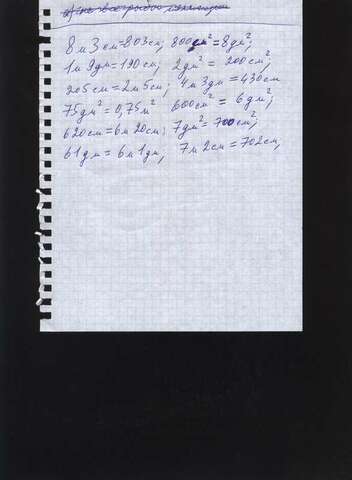 8 м 3 см=803 см; 800см²=8дм²;
1м 9дм=190см; 2дм²= 200см²;
205см=2м5см; 4м3дм=430см
75дм²=0,75м² 600см²= 6дм²;
620см=6м20см; 7дм²=700см²;
61дм=6м1дм, 7м2см=702см,